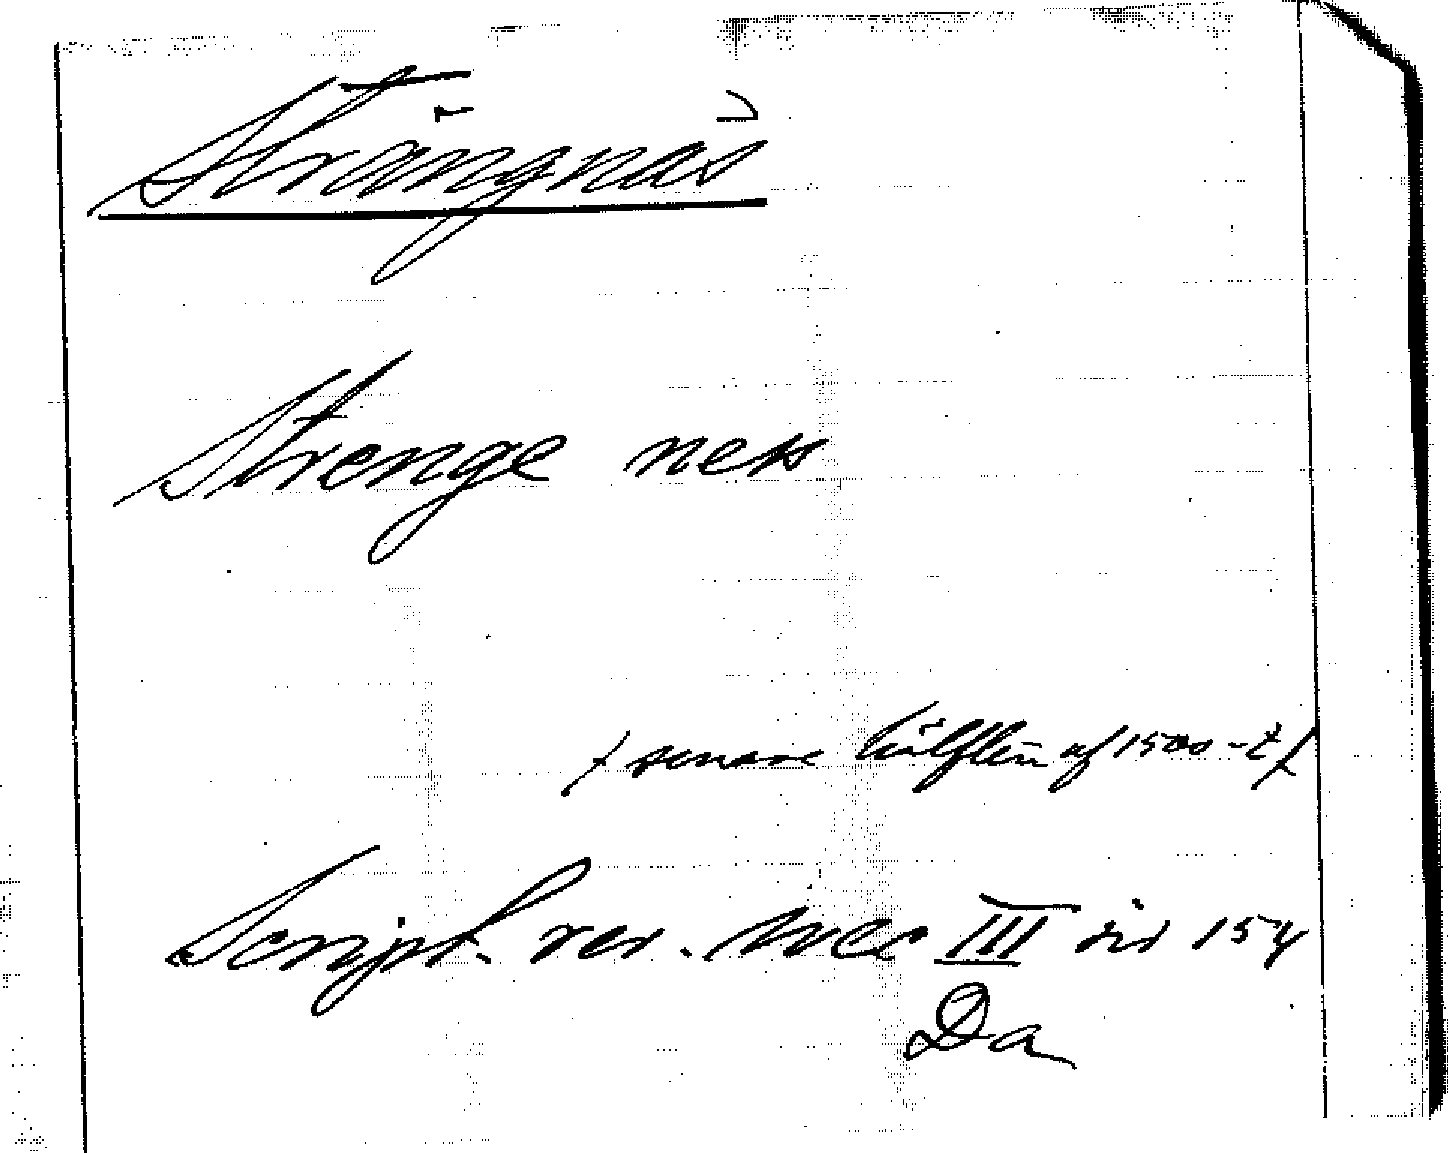 Strängnäs
Strenge nes
senare hälften af 1500-t
Script. rer. svec III sid 154
Da